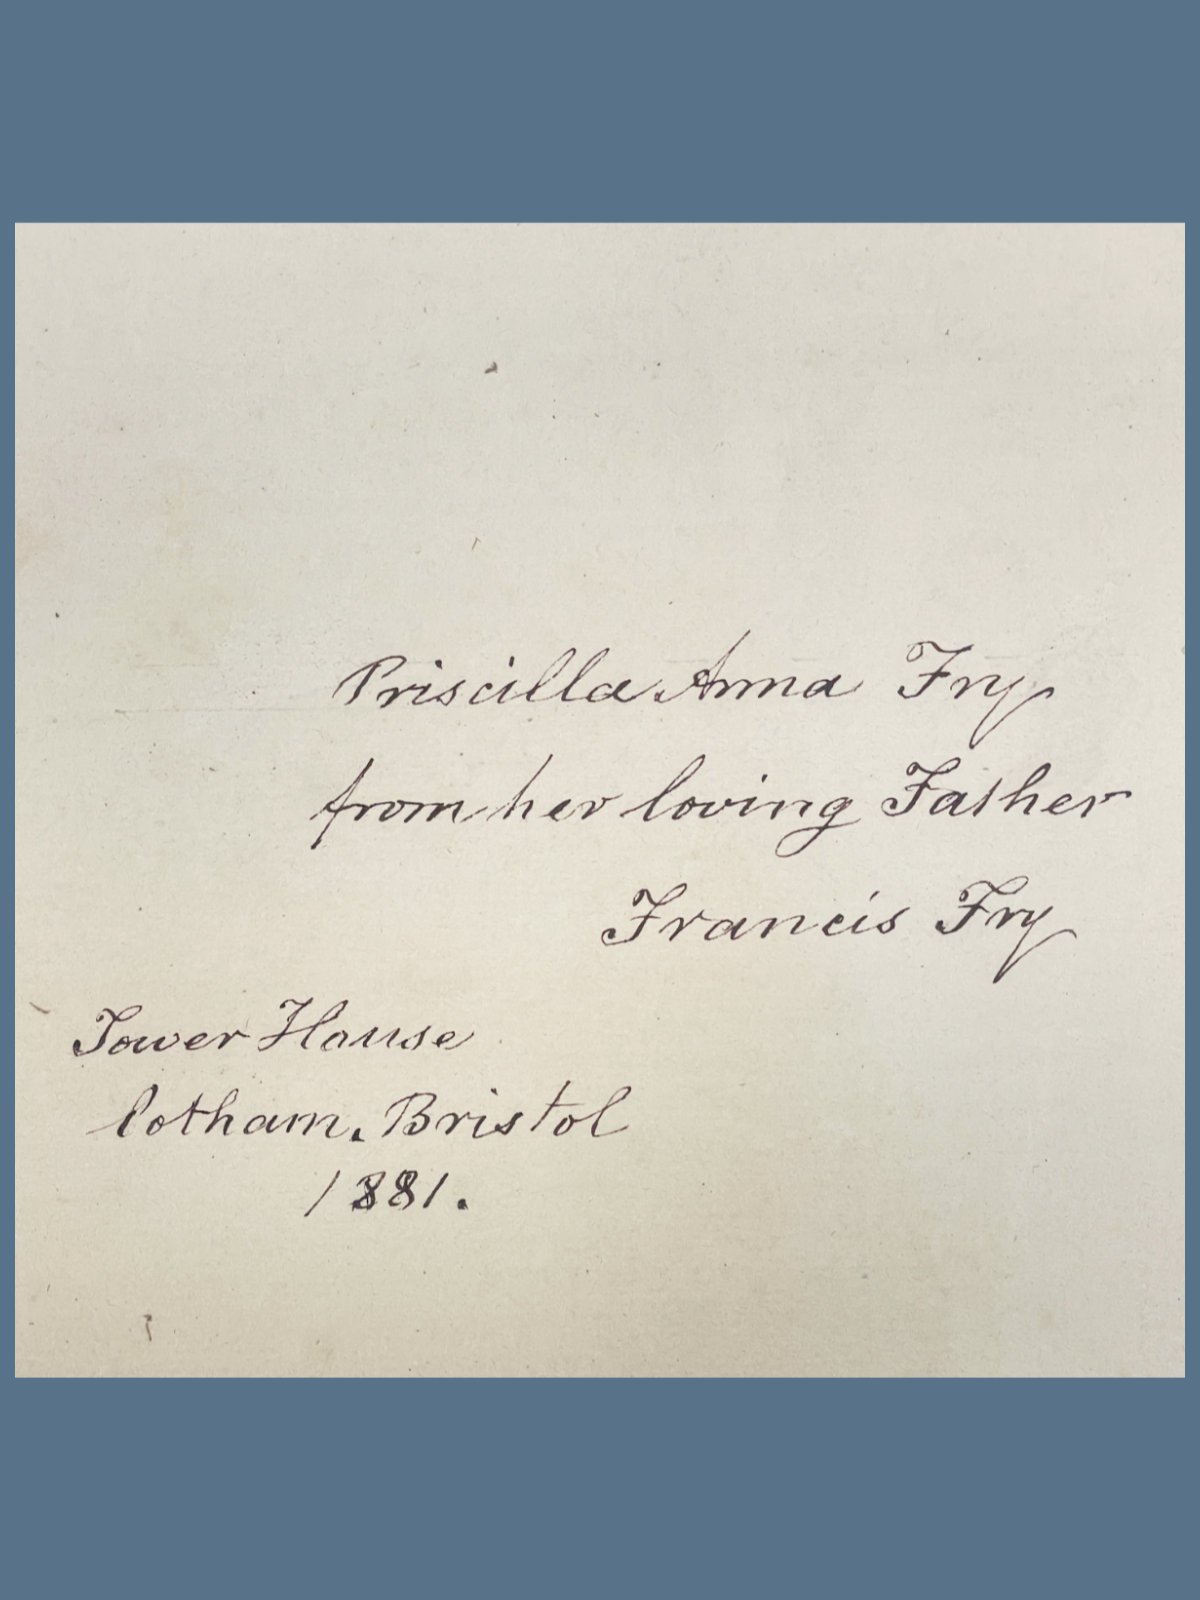 Priscilla Anna Fry
from her loving Father
Francis Fry
Tower House
Cotham, Bristol
1881.